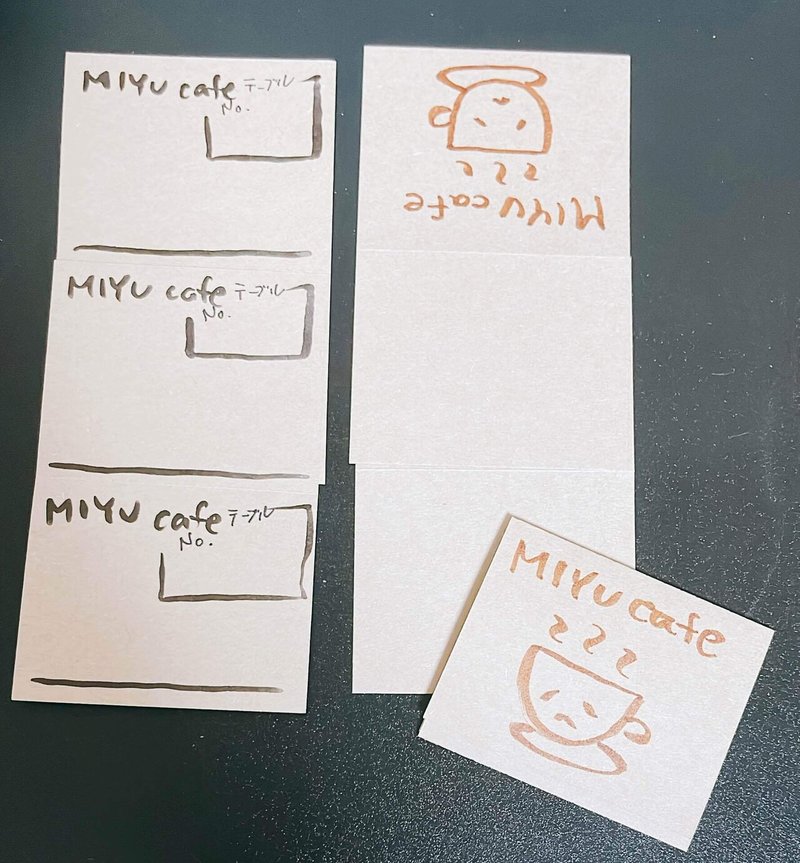 MIYU cafe テーブル
No.
MIYU cafe テーブル
No.
MIYU cafe テーブル
No.
MIYU cafe
MIYU cafe